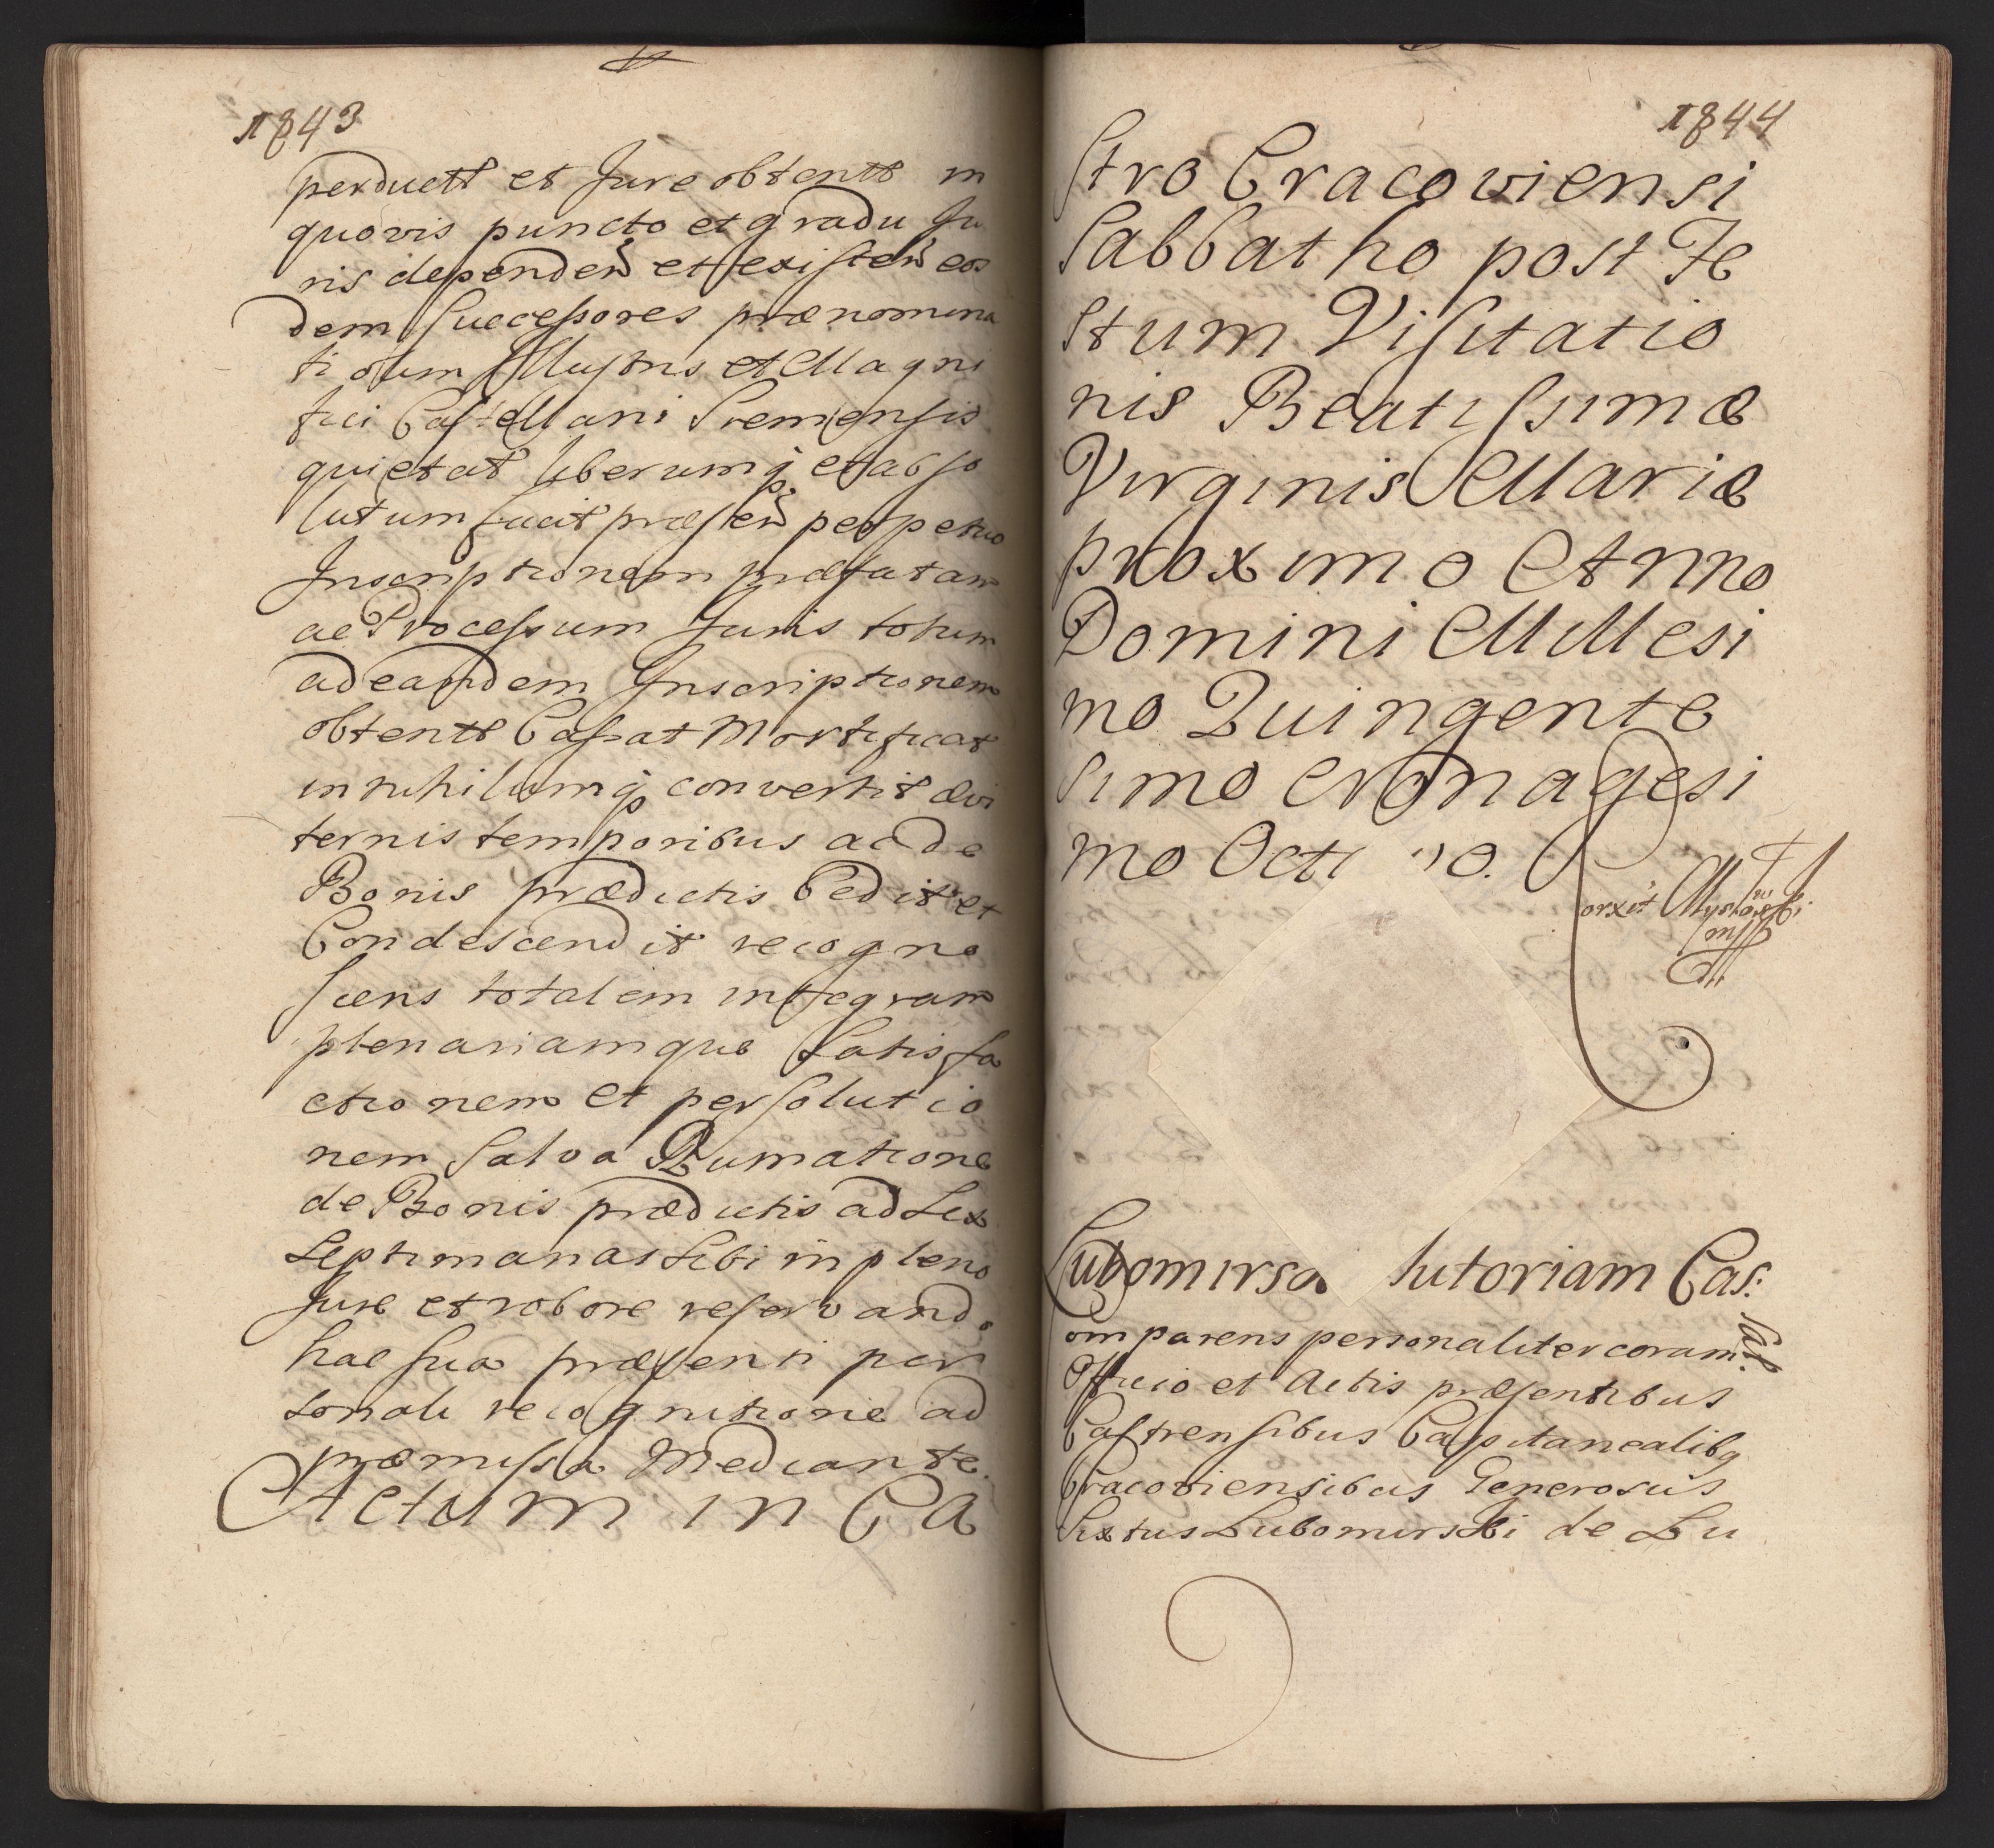 1843
perductt et Jure obtentt in
quovis puncto et gradu Ju
ris dependen et existen eos
dem Successores prænomina
ti olim Illustris et Magni
fici Castellani Premensis
quietat liberumq et abso
lutum facit præsen perpetuo
Inscriptionem præfatam
ac Processum Juris totum
ad eandem Inscriptionem
obtentt Cassat Mortificat
in nihilumq convertit ævi
ternis temporibus ac de
Bonis prædictis Cedit et
Condescendit recogno
scens totalem integram
plenariamque Satisfa
ctionem et persolutio
nem Salva Rumatione
de Bonis prædictis ad Sex
Septimanas Sibi in pleno
Jure et robore reservand
hac sua præsenti per
sonali recognitione ad
præmissa Mediante.
Actum in Ca
1844
stro Cracoviensi
Sabbatho post Fe
stum Visitatio
nis Beatissimæ
Virginis Mariæ
proximo Anno
Domini Millesi
mo Quingente
simo Nonagesi
mo Octavo.
Lubomirsa tutoriam Cas:
omparens personaliter coram
Officio et Actis præsentibus
Castrensibus Capitanealibq
Cracoviensibus Generosus
Sixtus Lubomirski de Lu